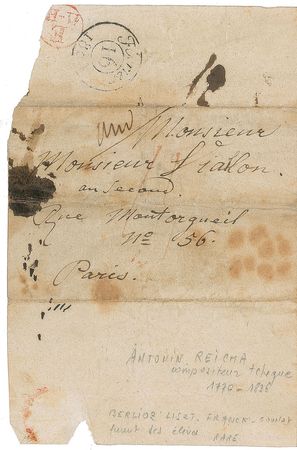 16
Monsieur
Monsieur
au Second
Rue Montorgueil
N° 56.
Paris.
ANTONIN REICHA
compositeur tchèque
1770 - 1836
BERLIOZ LISZT FRANCK
furent ses élèves
RARE